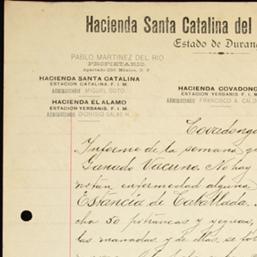 Hacienda Santa Catalina del
Estado de Duran
PABLO MARTINEZ DEL RIO
PROPIETARIO.
Apartado 250 México, D. F.
HACIENDA SANTA CATALINA
ESTACION CATALINA, F. I. M.
ADMINISTRADOR MIGUEL SOTO.
HACIENDA COVADONG
ESTACION YERBANIS, F. I. M.
ADMINISTRADOR FRANCISCO A. CALD
HACIENDA EL ALAMO
ESTACION YERBANIS. F. I. M.
ADMINISTRADOR DIONISIO SALAS N.
Covadonga
Informe de la semana q
Ganado Vacuno No hay
notan enfermedad alguna
Estancia de Caballada.
cha 30 potrancas y yeguas,
las manadas y de ellas, se for